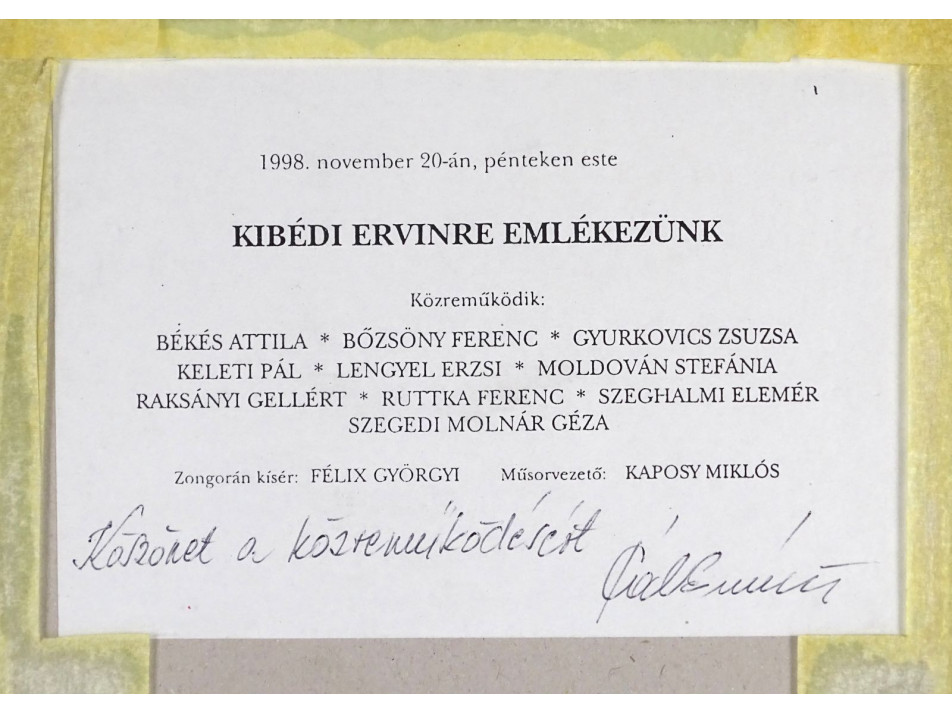 1998. november 20-án, pénteken este
KIBÉDI ERVINRE EMLÉKEZÜNK
Közreműködik:
BÉKÉS ATTILA * BŐZSÖNY FERENC * GYURKOVICS ZSUZSA
KELETI PÁL * LENGYEL ERZSI * MOLDOVÁN STEFÁNIA
RAKSÁNYI GELLÉRT * RUTTKA FERENC * SZEGHALMI ELEMÉR
SZEGEDI MOLNÁR GÉZA
Zongorán kísér: FÉLIX GYÖRGYI Műsorvezető: KAPOSY MIKLÓS
Köszönet a közreműködésért